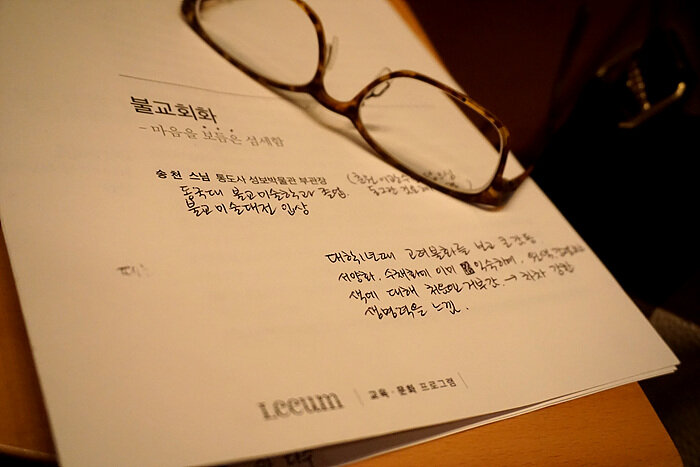 불교회화
- 마음을 보듬은 섬세함
송 천 스님 통도사 성보박물관 부관장
동국대 불교미술학과 졸업.
불교미술대전 입상
대학1년때 고려불화를 보고 큰 감동
서양화, 수채화에 이미 익숙하며,
색에 대해 처음엔 거북감. → 차차 강한
생명력을 느낌.
Leeum | 교육·문화 프로그램 |